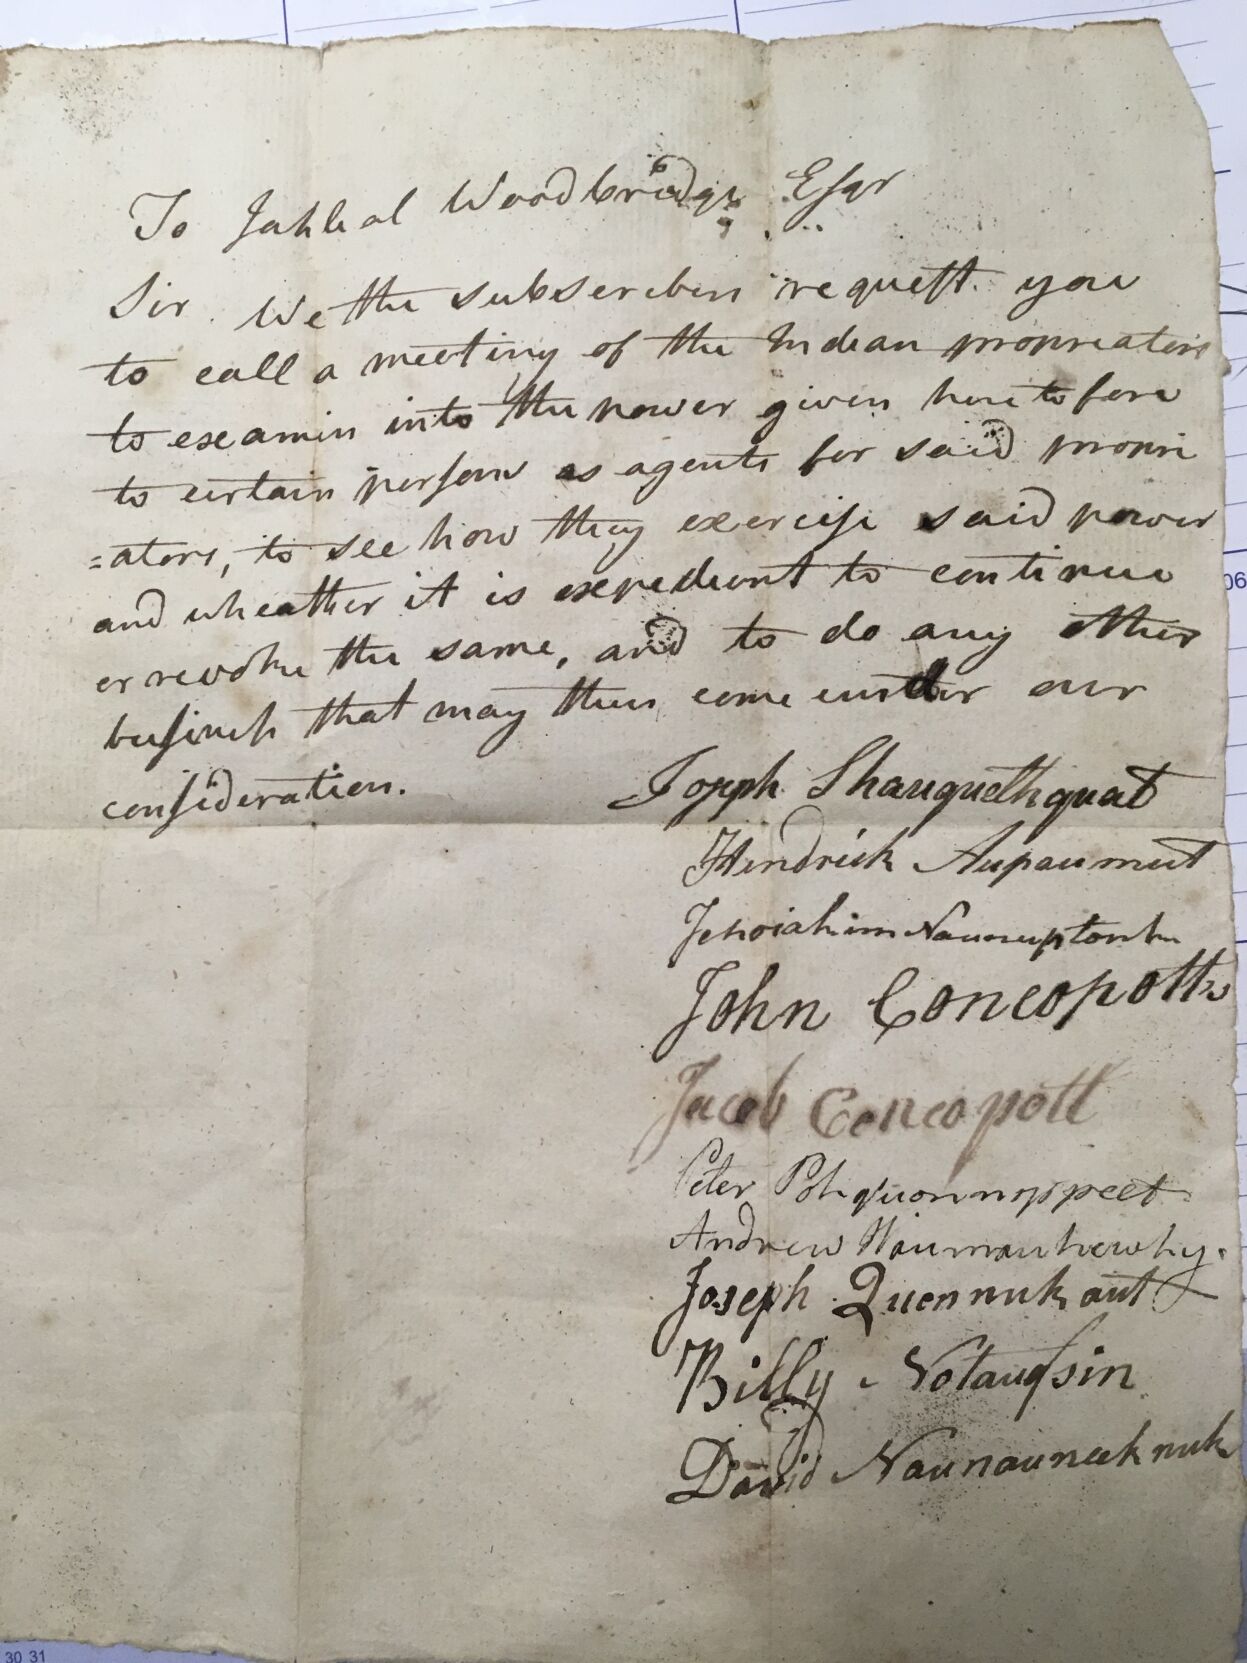 To Jahleal Woodbridge Esqr
Sir We the subscribers request you
to call a meeting of the Indian propreators
to examin into the power given heretofore
to certain persons as agents for said propri
=ators, to see how they exercise said power
and wheather it is expedient to continue
or revoke the same, and to do any other
business that may then come under our
consideration.
Joseph Shauquethquat
Hendrick Aupaumut
Jehoiakim Naunuptonk
John Concopott
Jacob Concopott
Peter Pohquonnoppeet
Andrew
Joseph Quennukaut
Billy Notaugsin
David Naunauneeknuk
06
30 31